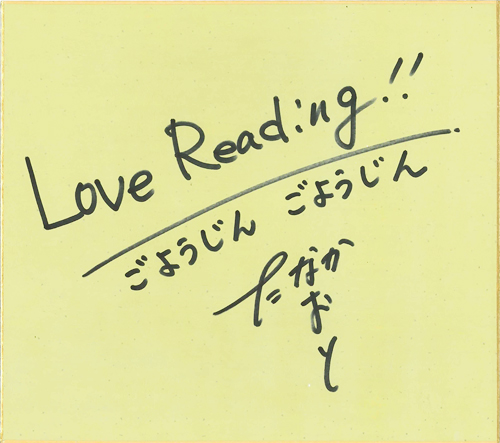 Love Reading!!
ごようじん ごようじん
たなか
お
と